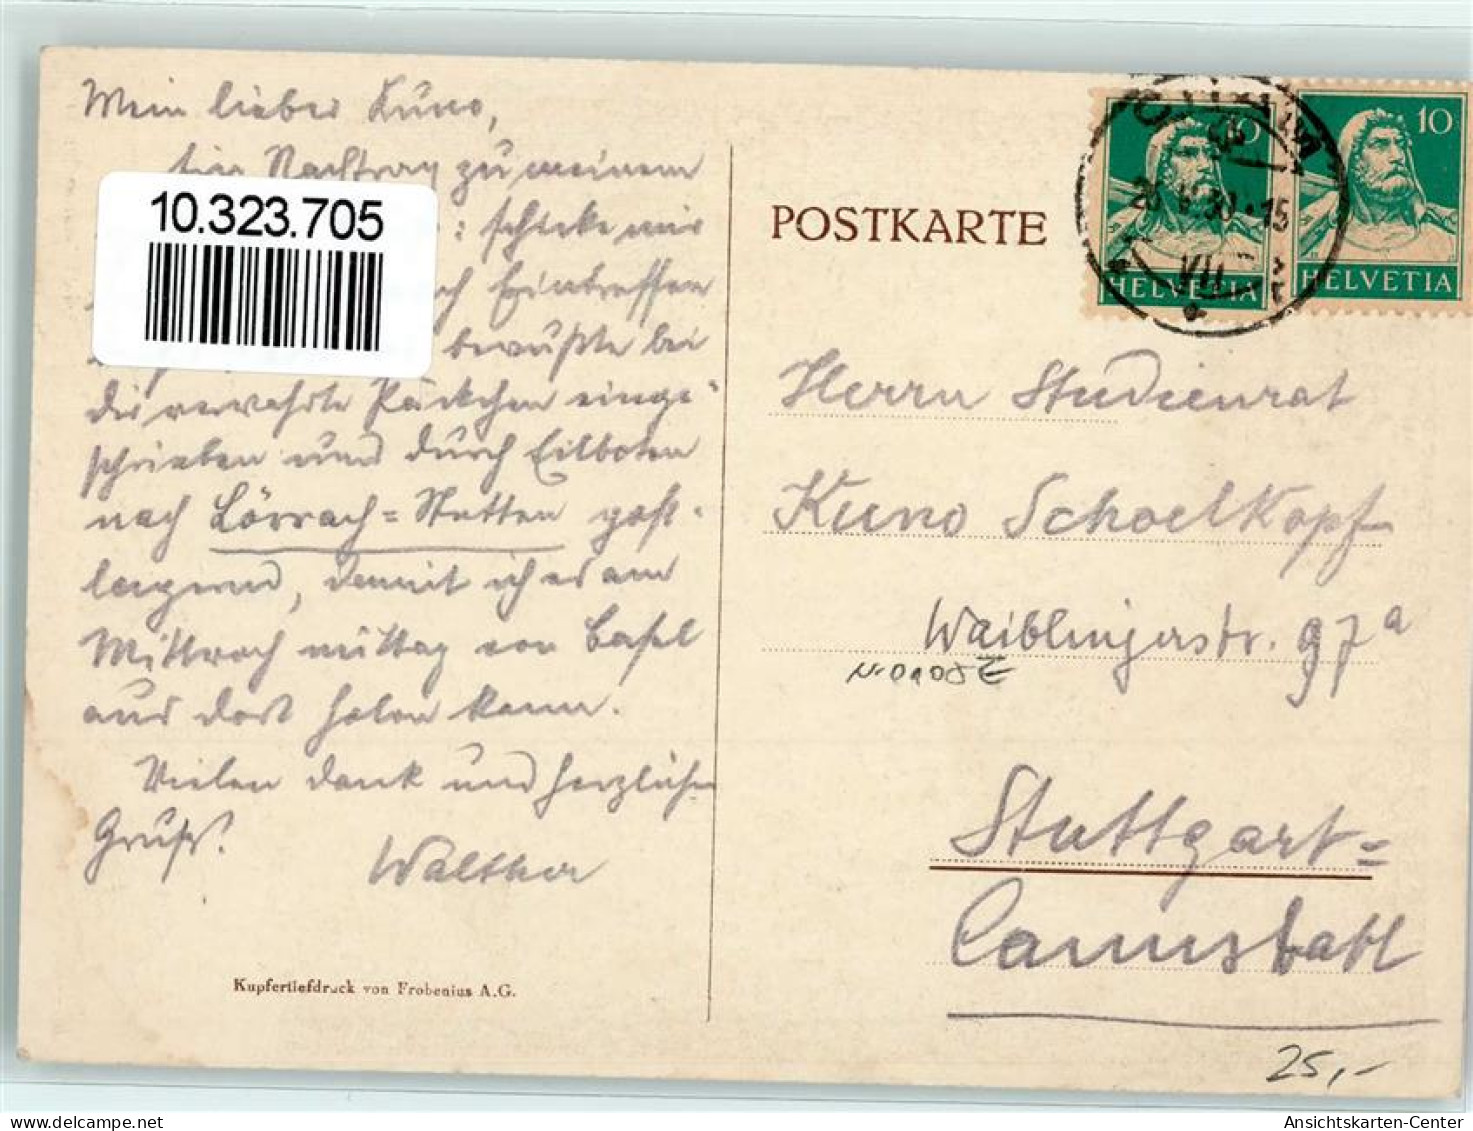 Mein lieber Kuno,
ein Nachtrag zu meinem
10.323.705
: schicke mir
Eintreffen
bewußte bei
dir verwahrte Päckchen einge-
schrieben und durch Eilboten
nach Lörrach=Stetten post-
lagernd, damit ich es am
Mittwoch mittag von Basel
aus dort holen kann.
Vielen Dank und herzlichen
Gruß!
Walther
Kupfertiefdruck von Frobenius A.G.
POSTKARTE
10
HELVETIA
10
HELVETIA
30.15
VII
Herrn Studienrat
Kuno Schoelkopf
Waiblingerstr. 97a
Stuttgart=
Cannstatt
25,-
Ansichtskarten-Center